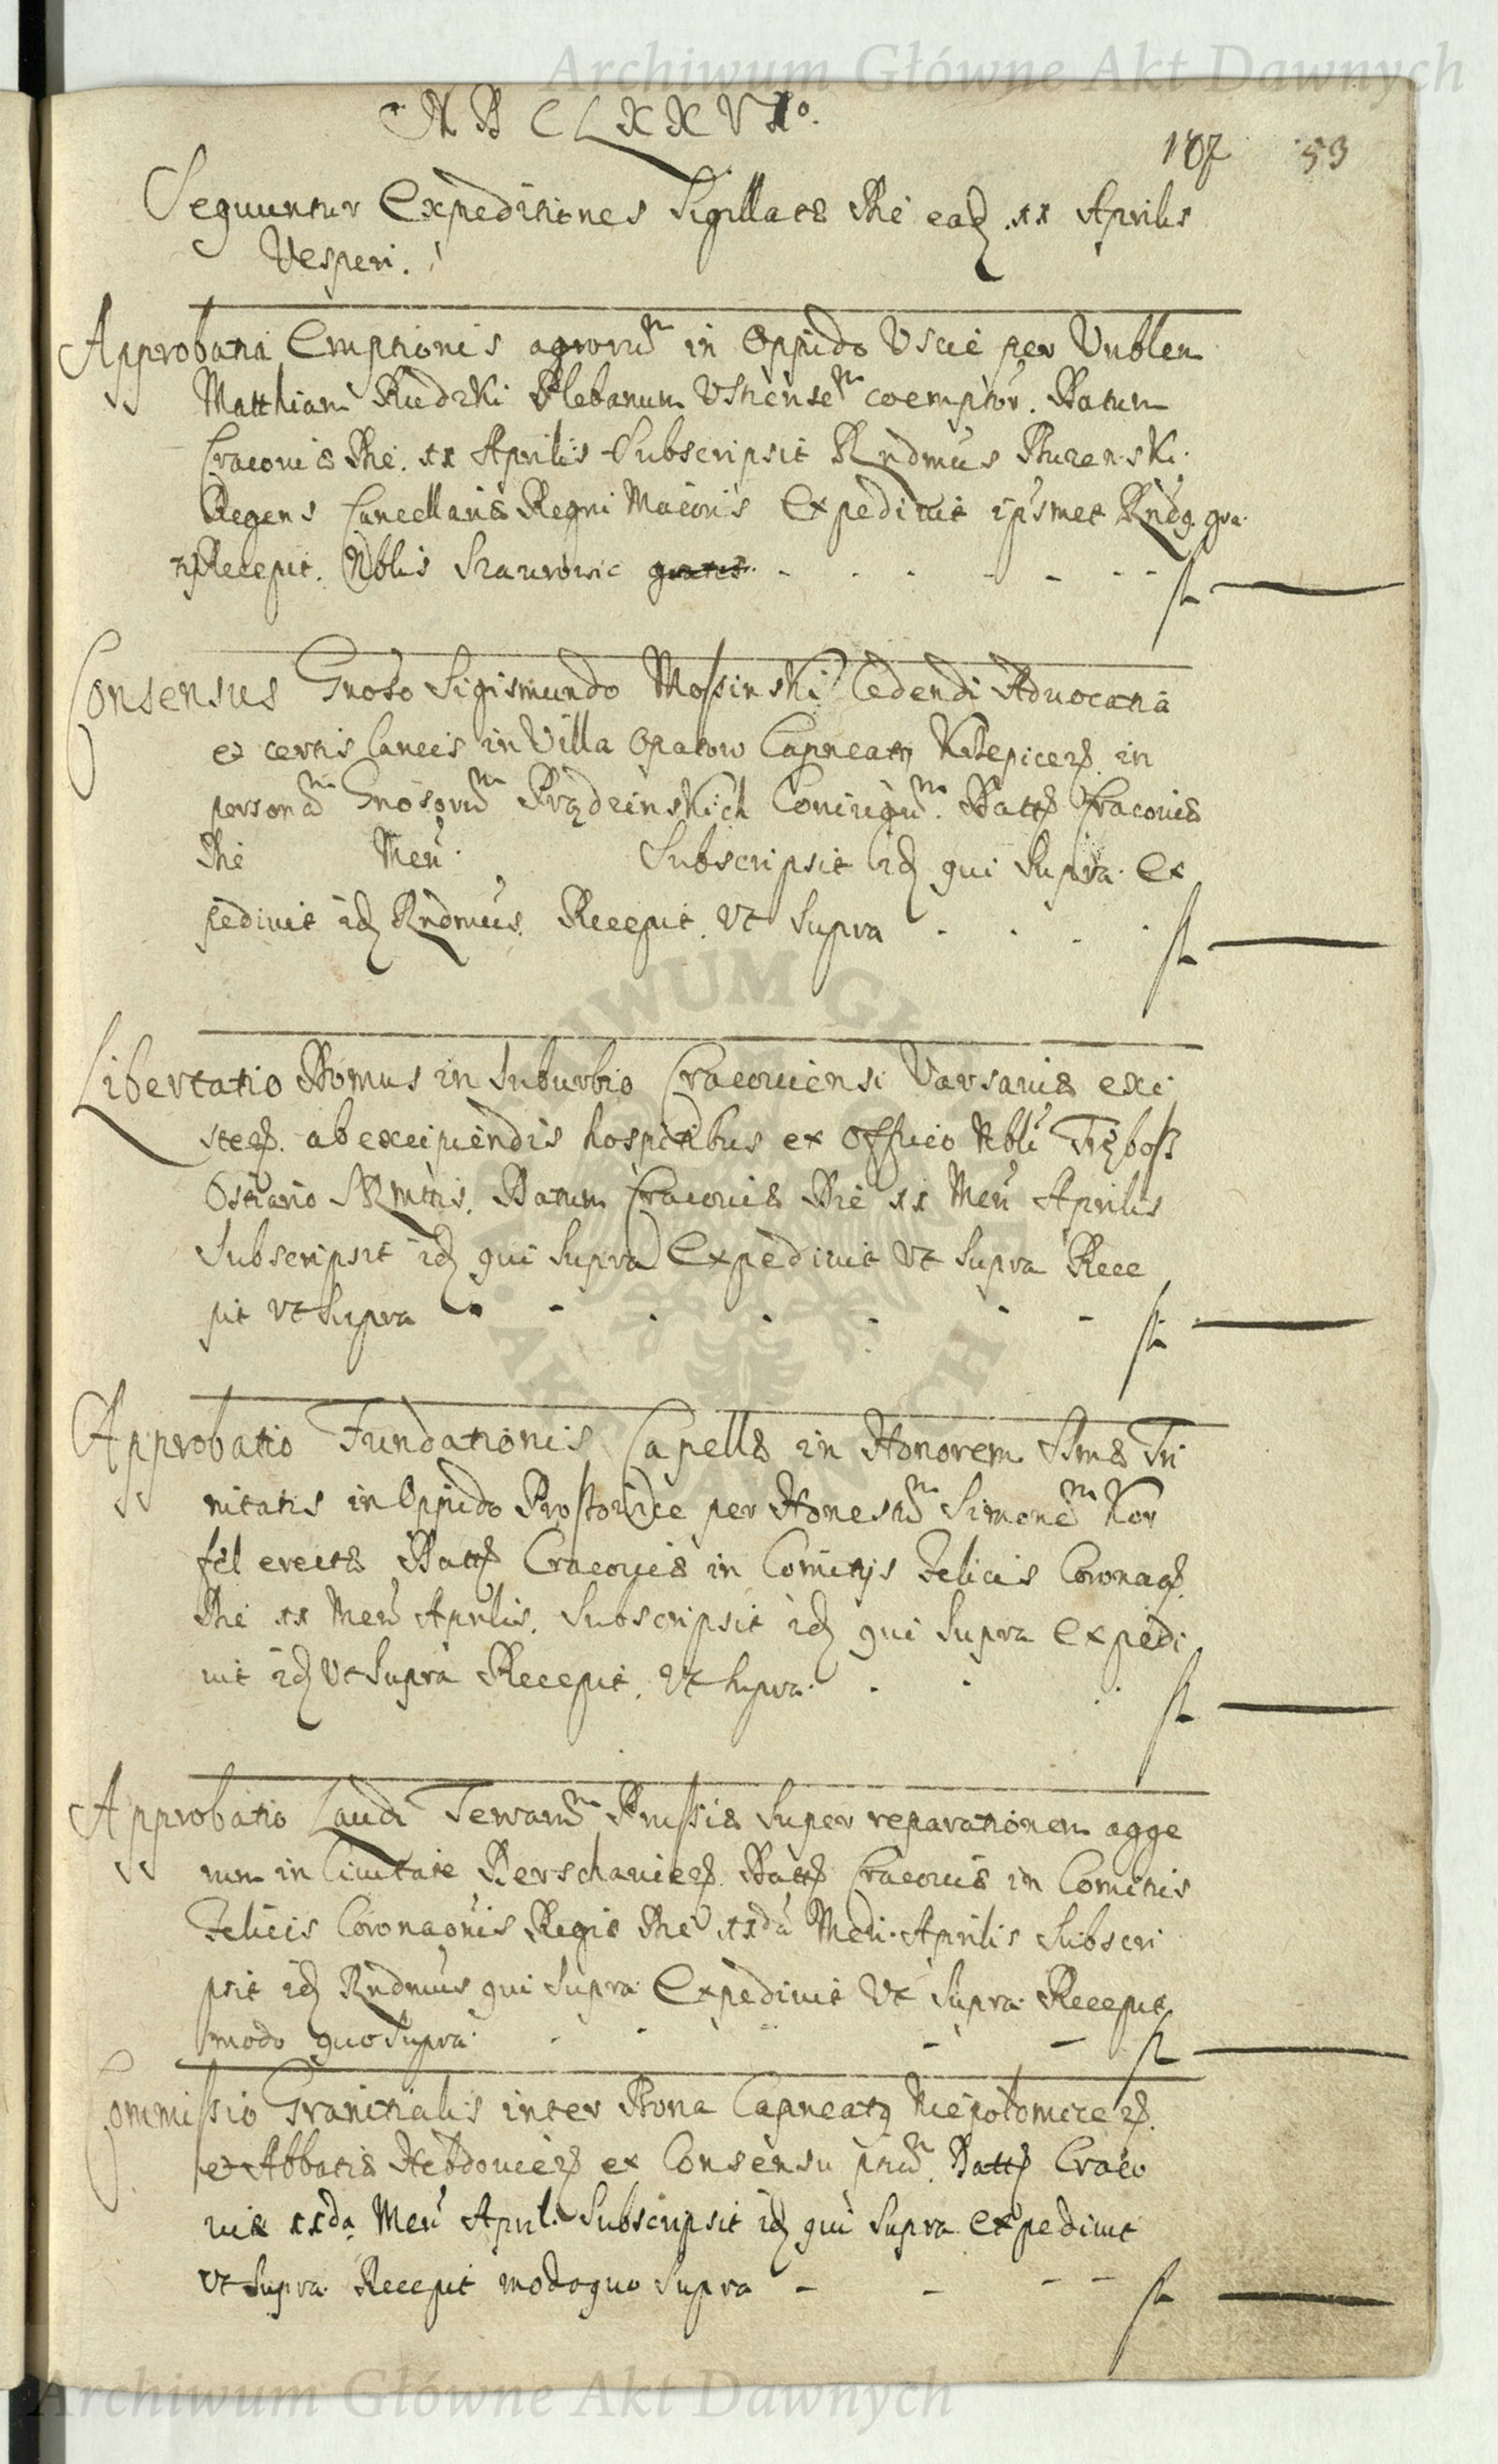 Archiwum Główne Akt Dawnych
M D C L X X V Io.
187 53
Sequuntur Expeditiones Sigillatæ Die eadẽ xx Aprilis
Vesperi.
Approbatia Emptionis agrorũm in Oppido Uscie per Vnblem
Matthiam Rudzki Plebanum Vstiensẽm coemptor. Datum
Cracouiæ Die. xx Aprilis Subscripsit Rndmus Buzenski.
Regens Cancellariæ Regni Maioris Expediuit ipsmet Rndg. gra
Recepit. Nblis gratis
fl
Consensus Gnoso Sigismundo Moſsinski Cedendi Aduocatia
et certis laneis in Villa Opatow Capneatq Krzepicen. in
personãm Gnosorũm Prądzinskich Coniugũm. Datt Cracouiæ
Die Men. Subscripsit idẽ qui Supra. Ex
pediuit idẽ Rndmus. Recepit. Vt Supra
fl
Libertatio Domus in Suburbio Cracouiensi Varsauiæ exi
sten. ab excipiendis hospitibus ex Officio Nbli Tręboſz
Ostiario SRMttis. Datum Cracouiæ Die xx Men Aprilis
Subscripsit idẽ qui Supra Expediuit Vt Supra Rece
pit vt Supra
fl
Approbatio Fundationis Capellæ in Honorem Ssmæ Tri
nitatis in Oppido per Honestũm Simonẽm Kor
fel erectæ Datt Cracouiæ in Comitijs Felicis Coronao
Die xx Men Aprilis. Subscripsit idẽ qui Supra Expedi
uit idẽ Vt Supra Recepit. Vt Supra.
fl
Approbatio Laudi Terrarũm Pruſsiæ Super reparationem agge
rum in Ciuitate Derschauien. Datt Cracouiæ in Comitiis
Felicis Coronaonis Regis Die xxda Men. Aprilis Subscri
psit idẽ Rndmus qui Supra. Expediuit Vt Supra. Recepit
modo quo Supra.
fl
Commiſsio Granitialis inter Bona Capneatq Niepolomicen.
et Abbatiæ Hebdouien ex Consensu priũm. Datt Craco
uiæ xxda Men April. Subscripsit idẽ qui Supra. Expediuit
Vt Supra. Recepit modo quo Supra
fl
Archiwum Główne Akt Dawnych